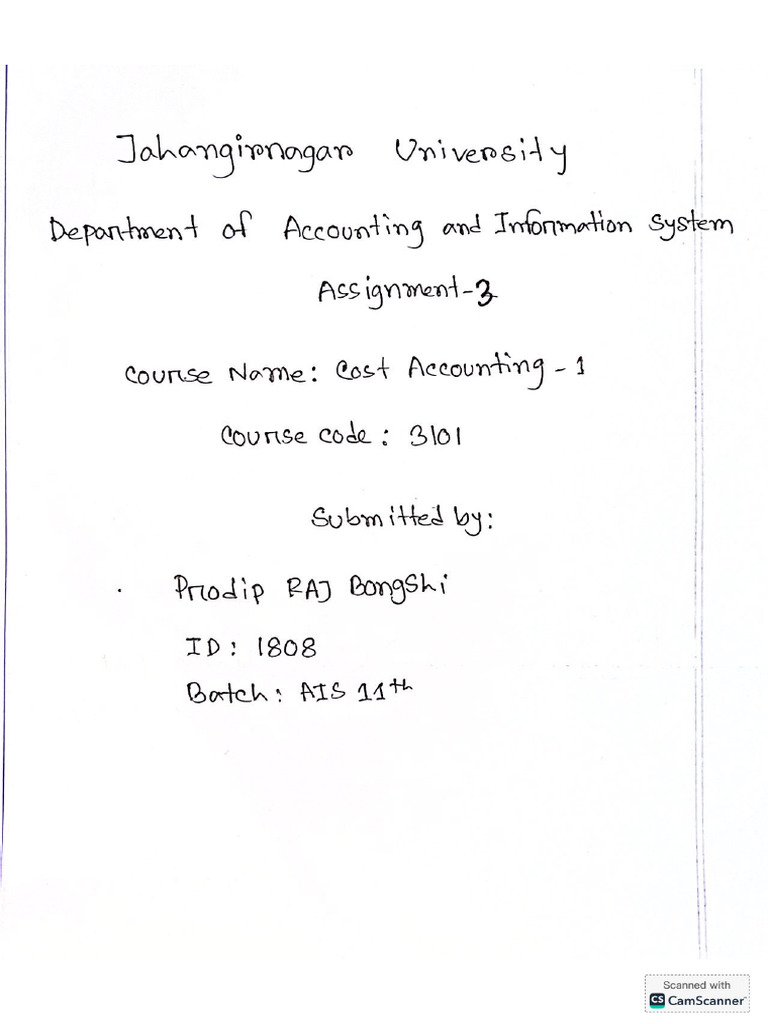 Jahangirnagar University
Department of Accounting and Information System
Assignment-3
Course Name: Cost Accounting - 1
Course code: 3101
Submitted by:
Prodip RAJ BongShi
ID: 1808
Batch: AIS 11th
Scanned with
CS CamScanner